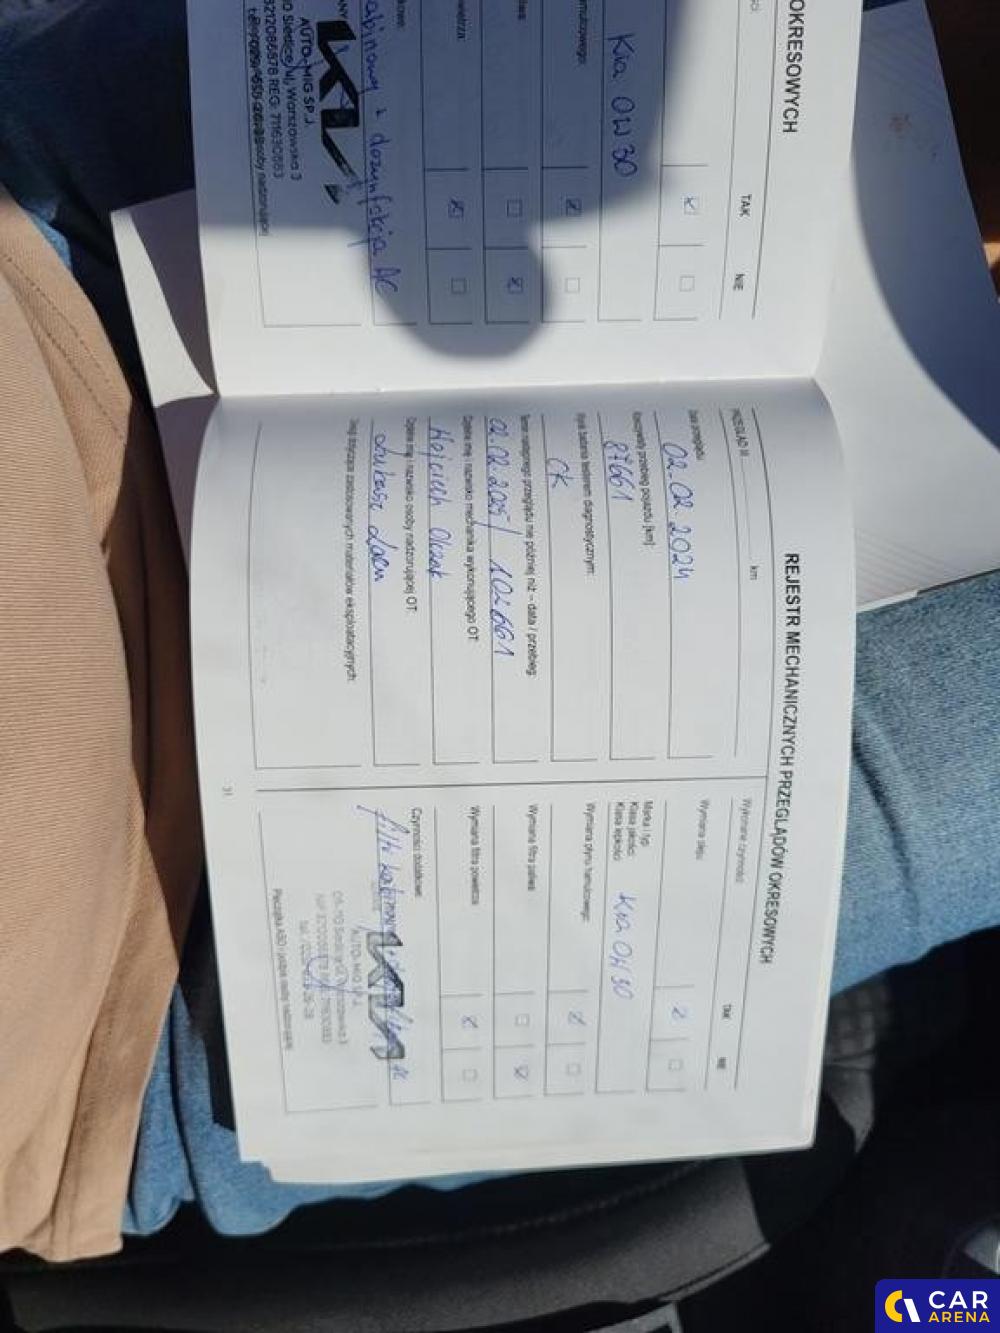 OKRESOWYCH
TAK
NIE
Kia OW 30
kabinowy + dezynfekcja AC
AUTO-MIG SP.J.
ul. Warszawska 3
REJESTR MECHANICZNYCH PRZEGLĄDÓW OKRESOWYCH
PRZEGLĄD III
km
Data przeglądu
02.02 2024
Rzeczywisty przebieg pojazdu [km]:
87661
Wynik badania testerem diagnostycznym:
OK
Termin następnego przeglądu nie później niż - data / przebieg:
02.02.2025 / 102661
Czytelne imię i nazwisko mechanika wykonującego OT:
Wojciech
Czytelne imię i nazwisko osoby nadzorującej OT:
Łukasz
Uwagi dotyczące zastosowanych materiałów eksploatacyjnych:
Wykonane czynności:
TAK
NIE
Wymiana oleju:
Marka i typ
Klasa jakości
Klasa lepkości
Kia OW 30
Wymiana płynu hamulcowego:
Wymiana filtra paliwa:
Wymiana filtra powietrza:
Czynności dodatkowe:
filtr kabinowy
AC
KIA
AUTO-MIG SP.J.
Pieczątka ASO i podpis osoby nadzorującej
31
CAR
ARENA